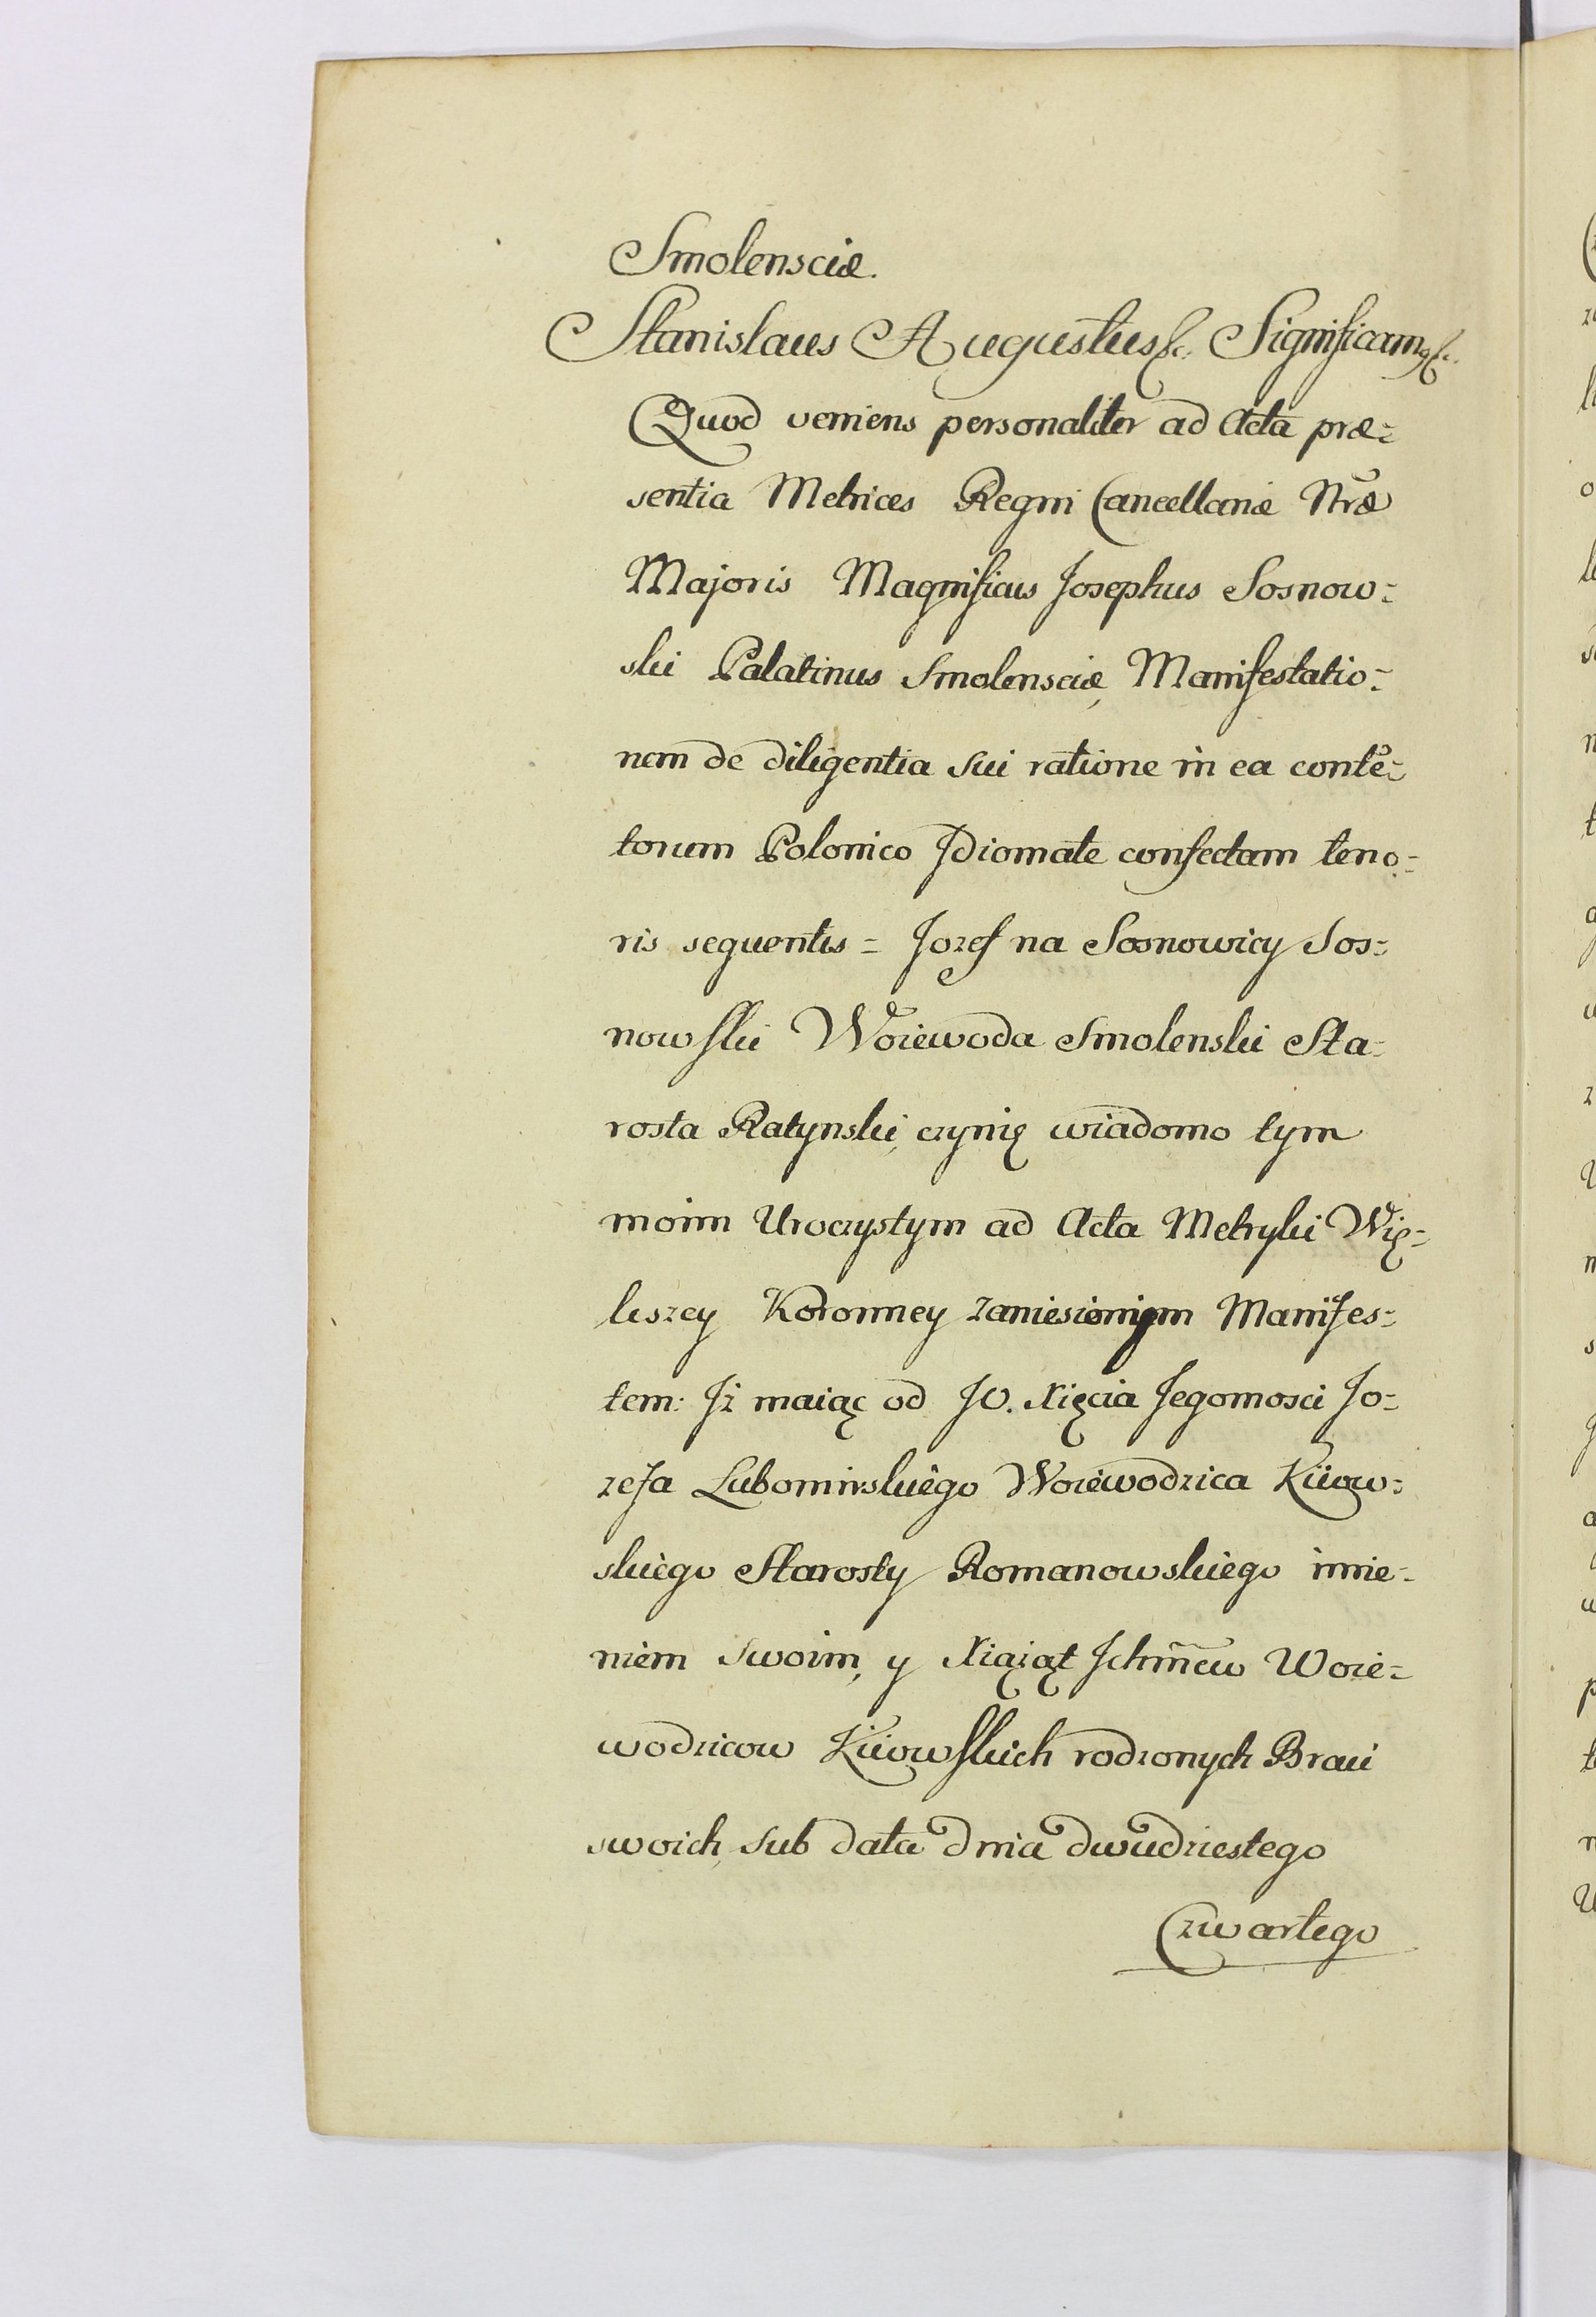 Smolensciæ.
Stanislaus Augustus &c. Significamꝯ &c.
Quod veniens personaliter ad Acta præ=
sentia Metrices Regni Cancellariæ Nr̃æ
Majoris Magnificus Josephus Sosnow=
ski Palatinus Smolensciæ, Manifestatio=
nem de diligentia sui ratione in ea contẽ=
torum Polonico Idiomate confectam teno=
ris sequentis = Jozef na Sosnowicy Sos=
nowski Woiewoda Smolenski Sta=
rosta Ratynski, czynię wiadomo tym
moim Uroczystym ad Acta Metryki Wię=
kszey Koronney zaniesionym Manifes=
tem: Iż maiąc od JO. Xięcia Jegomosci Jo=
zefa Lubomirskiego Woiewodzica Kiiow=
skiego Starosty Romanowskiego imie=
niem swoim, y Xiąząt Ichm̃cw Woie=
wodzicow Kiiowskich rodzonych Braci
swoich, sub data dnia dwudziestego
Czwartego